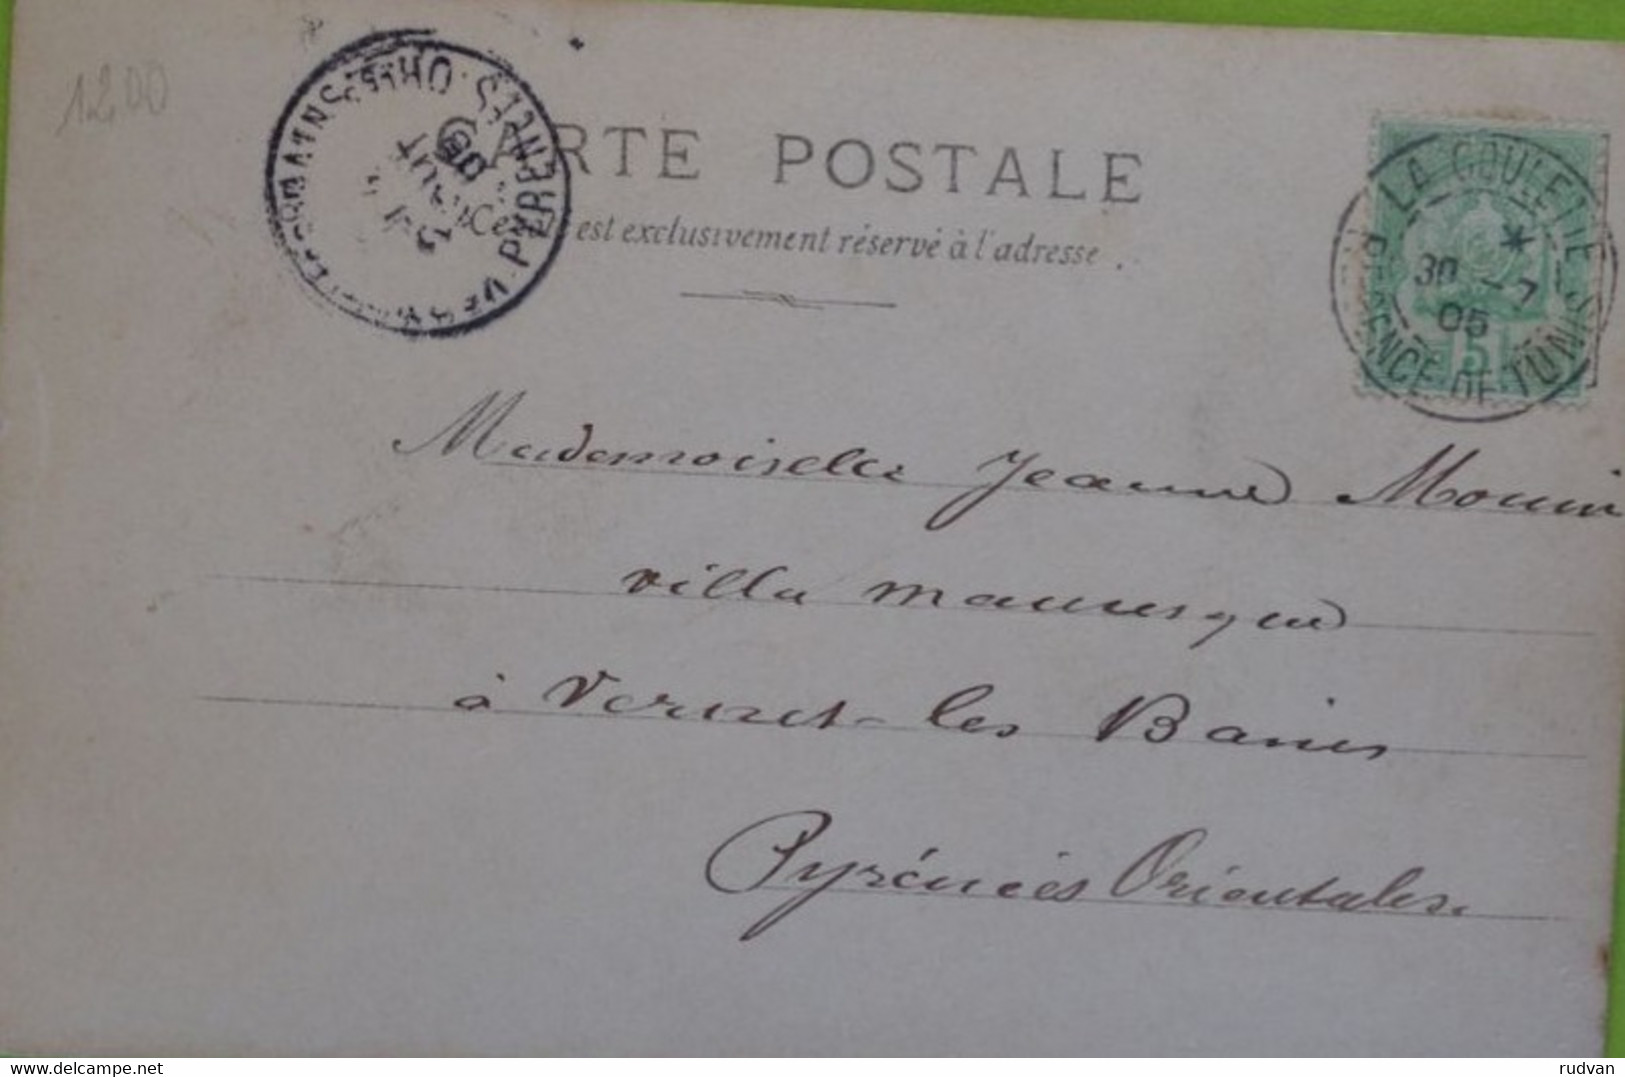 1200
CARTE POSTALE
Ce côté est exclusivement réservé à l'adresse.
LA GOULETTE
30 -7
05
RÉGENCE DE TUNIS
5
Mademoiselle Jeanne
villa mauresque
à Vernet-les Bains
Pyrénées Orientales.
AOUT
05
PYRÉNÉES-ORles
delcampe.net
rudvan